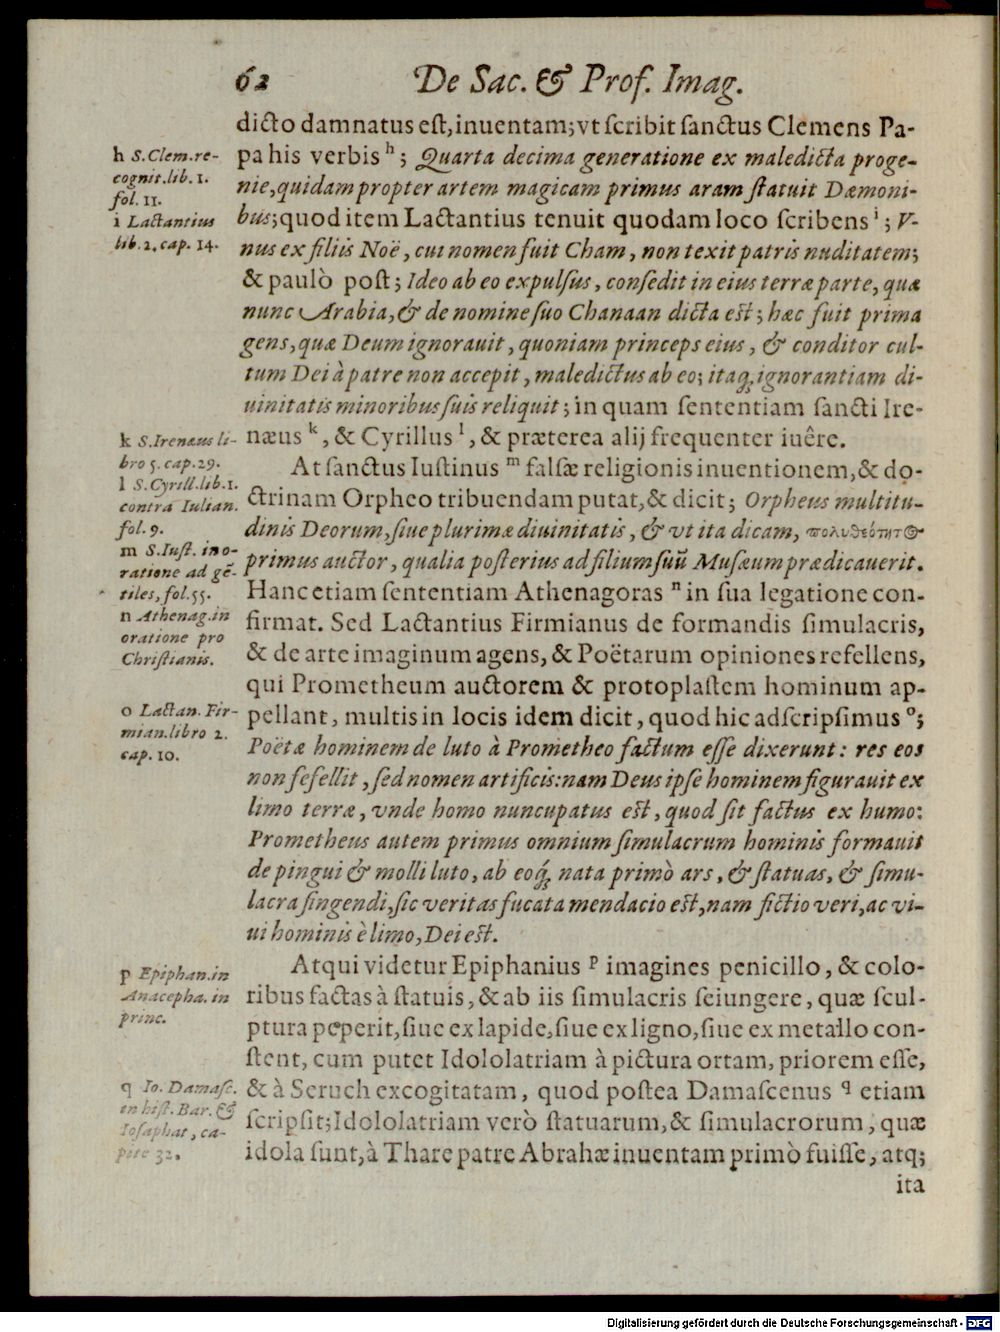 62 De Sac. & Prof. Imag.
dicto damnatus est, inuentam; vt scribit sanctus Clemens Pa-
pa his verbis h; Quarta decima generatione ex maledicta proge-
nie, quidam propter artem magicam primus aram statuit Dæmoni-
bus; quod item Lactantius tenuit quodam loco scribens i; V-
nus ex filiis Noë, cui nomen fuit Cham, non texit patris nuditatem;
& paulò post; Ideo ab eo expulsus, consedit in eius terræ parte, quæ
nunc Arabia, & de nomine suo Chanaan dicta est; hæc fuit prima
gens, quæ Deum ignorauit, quoniam princeps eius, & conditor cul-
tum Dei à patre non accepit, maledictus ab eo; itaq; ignorantiam di-
uinitatis minoribus suis reliquit; in quam sententiam sancti Ire-
næus k, & Cyrillus l, & præterea alij frequenter iuêre.
At sanctus Iustinus m falsæ religionis inuentionem, & do-
ctrinam Orpheo tribuendam putat, & dicit; Orpheus multitu-
dinis Deorum, siue plurimæ diuinitatis, & vt ita dicam, πολυθεότητος
primus auctor, qualia posterius ad filium suũ Musæum prædicauerit.
Hanc etiam sententiam Athenagoras n in sua legatione con-
firmat. Sed Lactantius Firmianus de formandis simulacris,
& de arte imaginum agens, & Poëtarum opiniones refellens,
qui Prometheum auctorem & protoplastem hominum ap-
pellant, multis in locis idem dicit, quod hic adscripsimus o;
Poëtæ hominem de luto à Prometheo factum esse dixerunt: res eos
non fefellit, sed nomen artificis: nam Deus ipse hominem figurauit ex
limo terræ, vnde homo nuncupatus est, quod sit factus ex humo:
Prometheus autem primus omnium simulacrum hominis formauit
de pingui & molli luto, ab eoq; nata primò ars, & statuas, & simu-
lacra fingendi, sic veritas fucata mendacio est, nam fictio veri, ac vi-
ui hominis è limo, Dei est.
Atqui videtur Epiphanius p imagines penicillo, & colo-
ribus factas à statuis, & ab iis simulacris seiungere, quæ scul-
ptura peperit, siue ex lapide, siue ex ligno, siue ex metallo con-
stent, cum putet Idololatriam à pictura ortam, priorem esse,
& à Seruch excogitatam, quod postea Damascenus q etiam
scripsit; Idololatriam verò statuarum, & simulacrorum, quæ
idola sunt, à Thare patre Abrahæ inuentam primò fuisse, atq;
ita
h S. Clem. re-
cognit. lib. 1.
fol. 11.
i Lactantius
lib. 2. cap. 14.
k S. Irenæus li-
bro 5. cap. 29.
l S. Cyrill. lib. 1.
contra Iulian.
fol. 9.
m S. Iust. in o-
ratione ad gẽ-
tiles, fol. 55.
n Athenag. in
oratione pro
Christianis.
o Lactan. Fir-
mian. libro 2.
cap. 10.
p Epiphan. in
Anacepha. in
princ.
q Io. Damasc.
in hist. Bar. &
Iosaphat, ca-
pite 32.
Digitalisierung gefördert durch die Deutsche Forschungsgemeinschaft - DFG